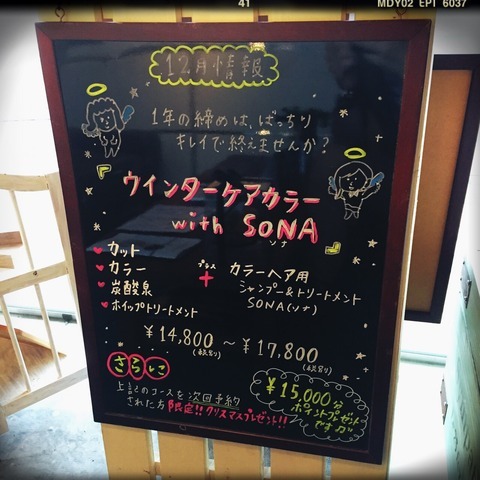 41
MDY02 EPI 6037
12月情報
1年の締めは、ばっちり
キレイで終えませんか?
ウインターケアカラー
with SONA
ソナ
カット
カラー
炭酸泉
ホイップトリートメント
プラス
+
カラーヘア用
シャンプー&トリートメント
SONA(ソナ)
¥14,800 ~ ¥17,800
(税別) (税別)
さらに
上記のコースを次回予約
された方限定!!クリスマスプレゼント!!
¥15,000分
ポイントプレゼント
です